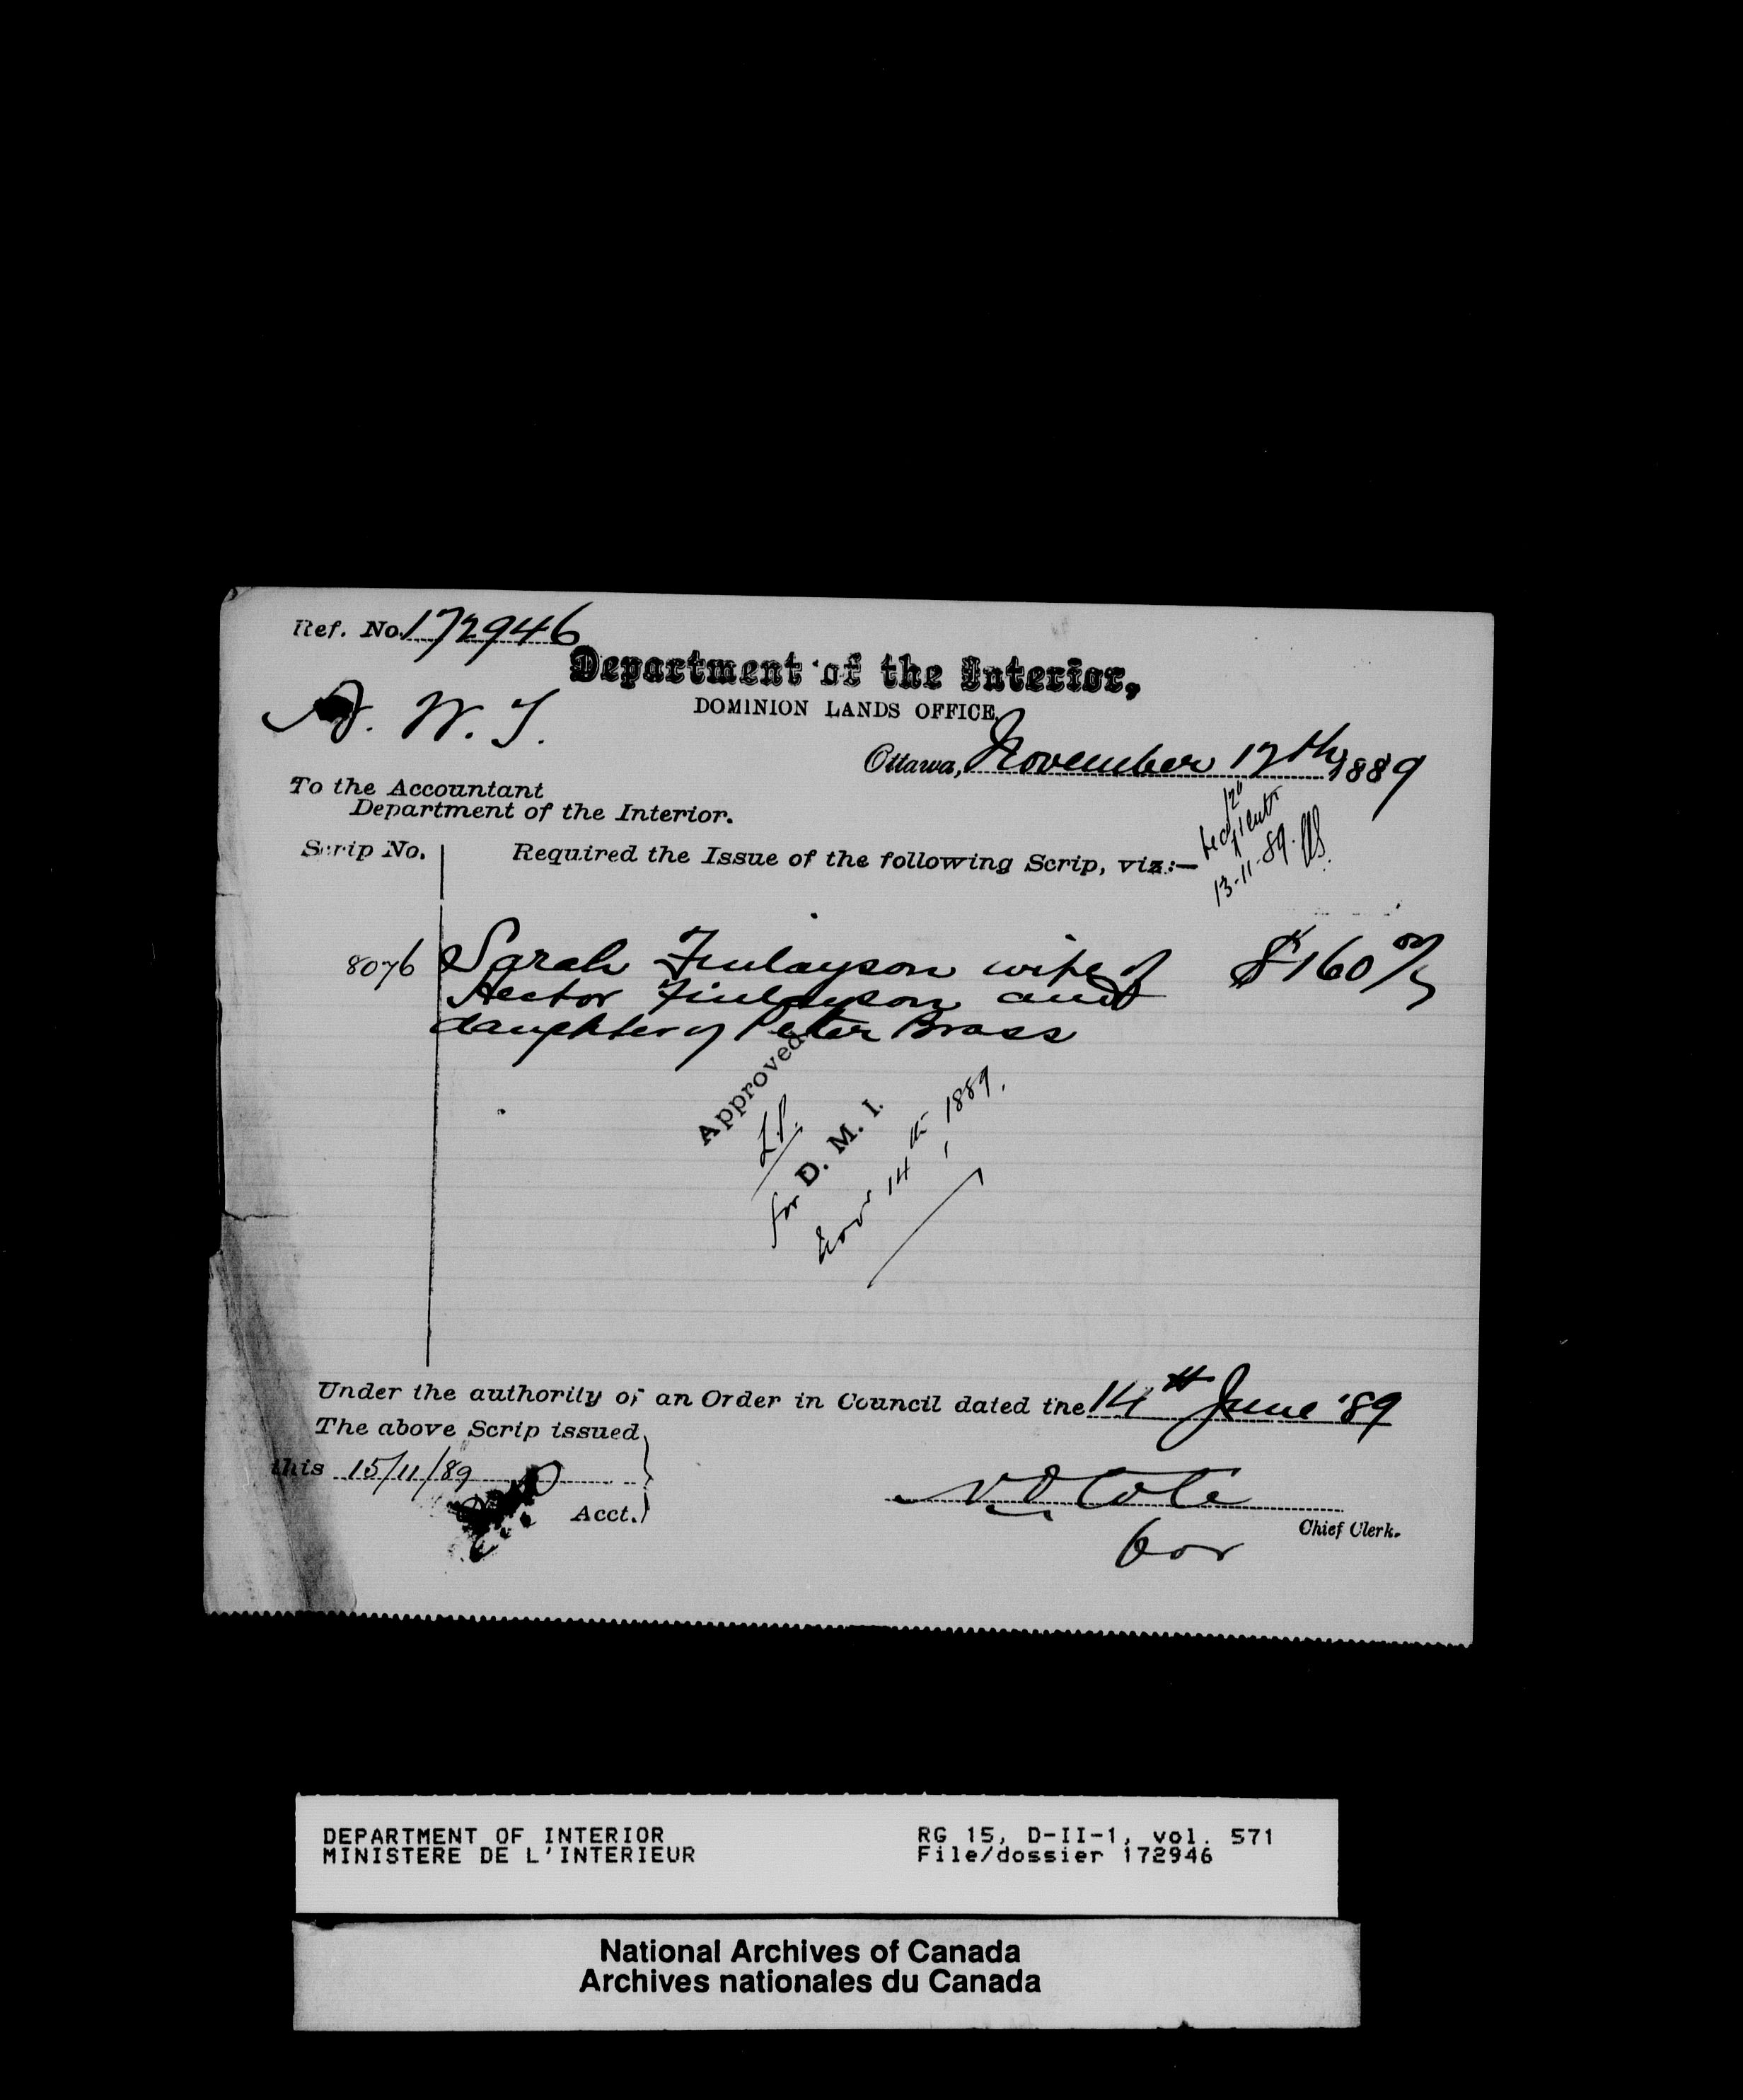 Ref. No. 172946
Department of the Interior,
DOMINION LANDS OFFICE,
N. W. T.
Ottawa, November 12th, 1889
To the Accountant
Department of the Interior.
13-11-89.
Scrip No.
Required the Issue of the following Scrip, viz:—
8076 Sarah Finlayson wife of $160 00/
Hector Finlayson and
daughter of Peter Brass
Approved
L.P.
for D. M. I.
Nov 14th 1889.
Under the authority of an Order in Council dated the 14th June '89
The above Scrip issued
this 15/11/89
Acct.
N. O. Cote
Chief Clerk.
for
DEPARTMENT OF INTERIOR
MINISTERE DE L'INTERIEUR
RG 15, D-II-1, vol. 571
File/dossier 172946
National Archives of Canada
Archives nationales du Canada